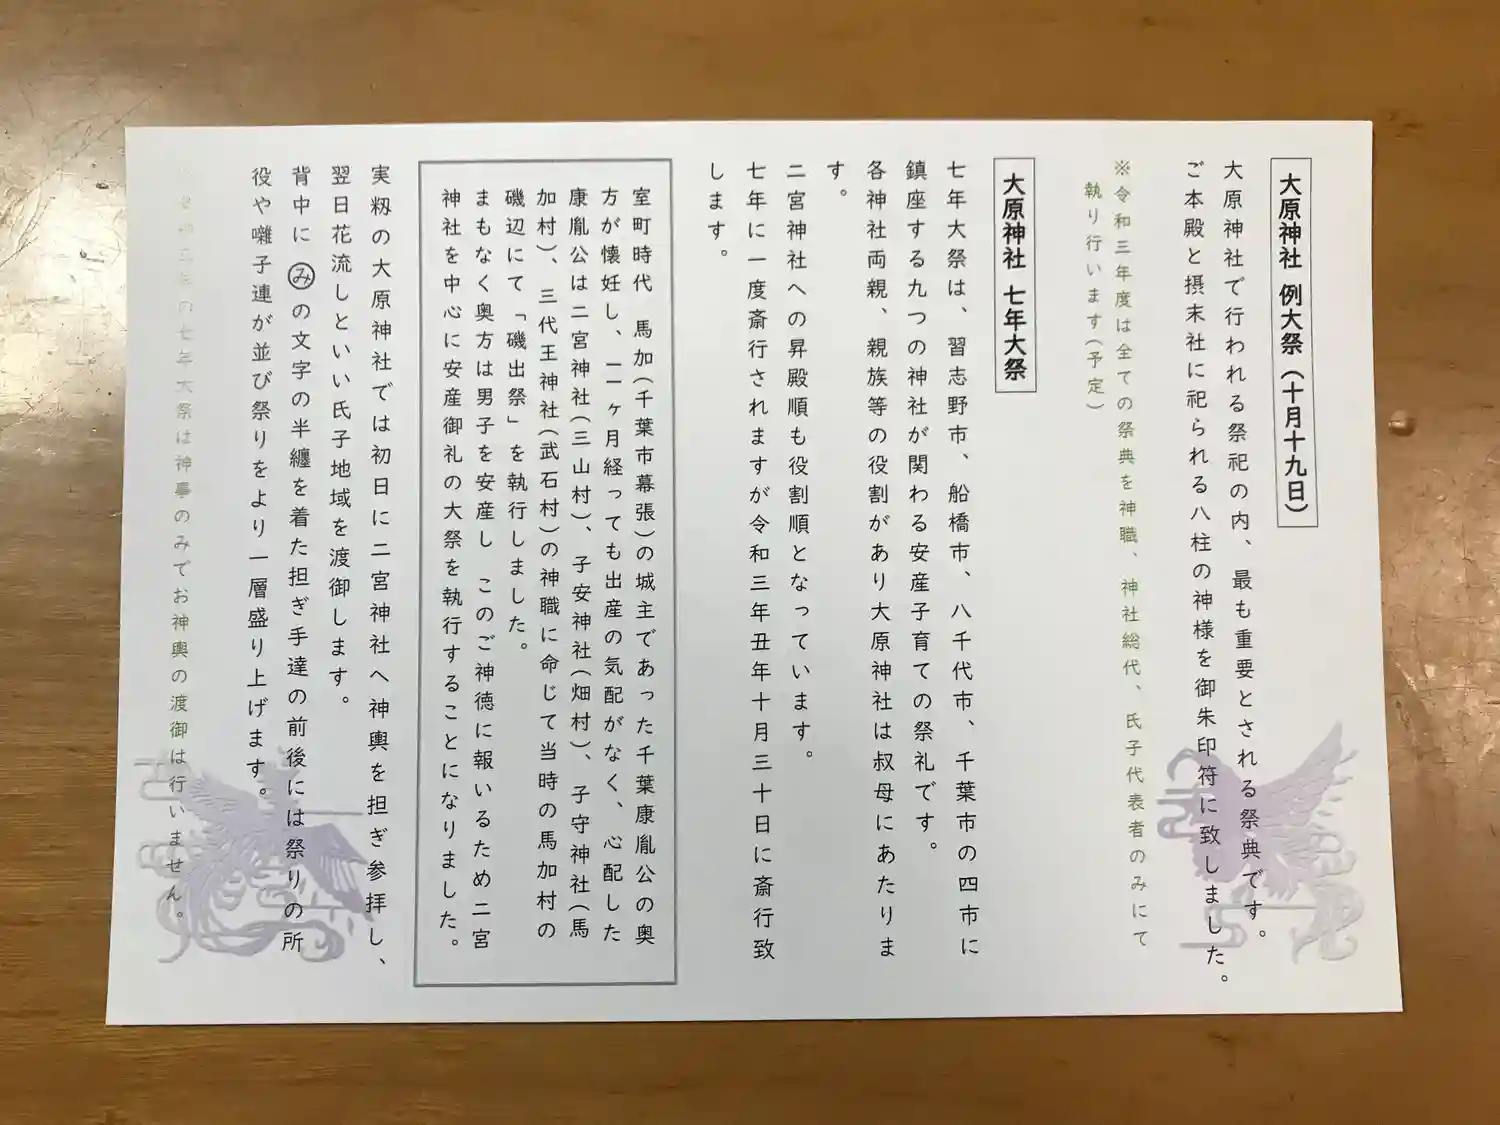 大原神社 例大祭（十月十九日）
大原神社で行われる祭祀の内、最も重要とされる祭典です。
ご本殿と摂末社に祀られる八柱の神様を御朱印符に致しました。
※令和三年度は全ての祭典を神職、神社総代、氏子代表者のみにて
執り行います(予定)
大原神社 七年大祭
七年大祭は、習志野市、船橋市、八千代市、千葉市の四市に
鎮座する九つの神社が関わる安産子育ての祭礼です。
各神社両親、親族等の役割があり大原神社は叔母にあたりま
す。
二宮神社への昇殿順も役割順となっています。
七年に一度斎行されますが令和三年丑年十月三十日に斎行致
します。
室町時代 馬加(千葉市幕張)の城主であった千葉康胤公の奥
方が懐妊し、一一ヶ月経っても出産の気配がなく、心配した
康胤公は二宮神社(三山村)、子安神社(畑村)、子守神社(馬
加村)、三代王神社(武石村)の神職に命じて当時の馬加村の
磯辺にて「磯出祭」を執行しました。
まもなく奥方は男子を安産し このご神徳に報いるため二宮
神社を中心に安産御礼の大祭を執行することになりました。
実籾の大原神社では初日に二宮神社へ神輿を担ぎ参拝し、
翌日花流しといい氏子地域を渡御します。
背中に㋯の文字の半纏を着た担ぎ手達の前後には祭りの所
役や囃子連が並び祭りをより一層盛り上げます。
の七年大祭は神事のみでお神輿の渡御は行いません。